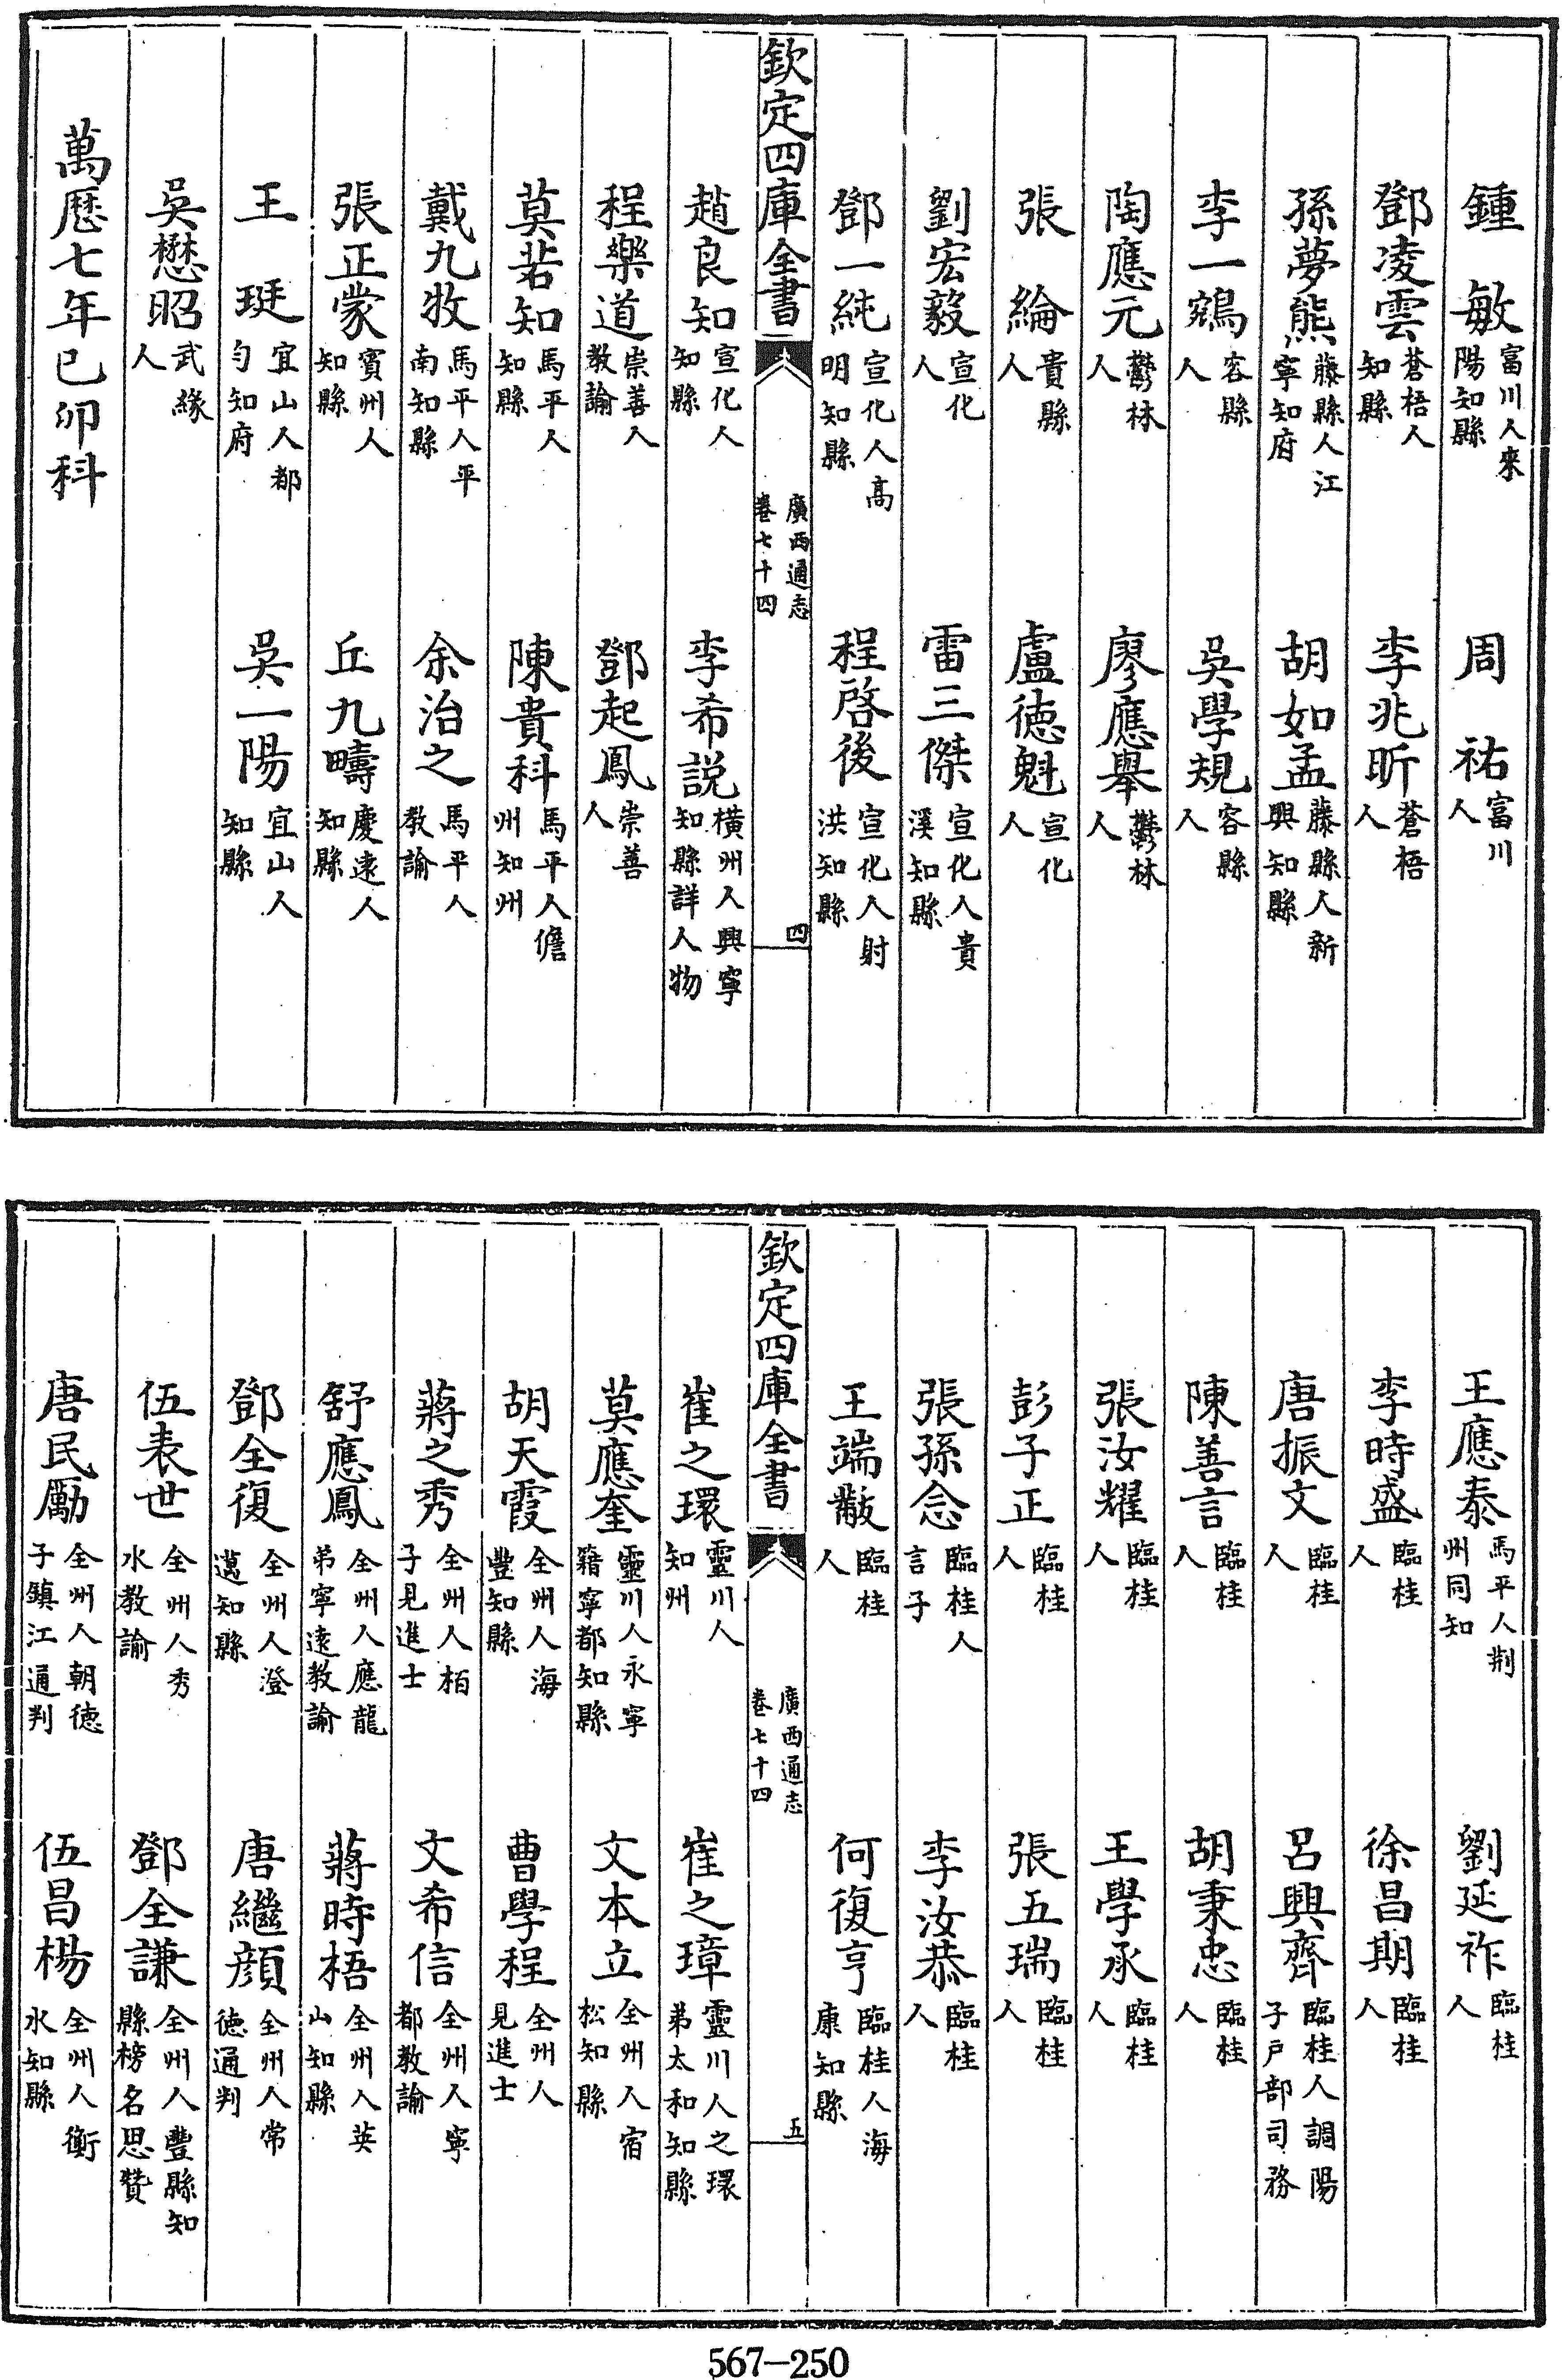 鍾敏富川人來陽知縣　周祐富川人
鄧凌雲蒼梧人知縣　李兆昕蒼梧人
孫夢熊藤縣人江寧知府　胡如孟藤縣人新興知縣
李一鶏容縣人　吳學規容縣人
陶應元鬱林人　廖應舉鬱林人
張綸貴縣人　盧德魁宣化人
劉宏毅宣化人　雷三傑宣化人貴溪知縣
鄧一純宣化人高明知縣　程啓後宣化人射洪知縣
欽定四庫全書　廣西通志卷七十四　四
趙良知宣化人知縣　李希説橫州人興寧知縣詳人物
程樂道崇善人教諭　鄧起鳳崇善人
莫若知馬平人知縣　陳貴科馬平人儋州知州
戴九牧馬平人平南知縣　余治之馬平人教諭
張正蒙賓州人知縣　丘九疇慶逺人知縣
王珽宜山人都勻知府　吳一陽宜山人知縣
吳懋昭武緣人
萬厯七年已卯科
王應泰馬平人荆州同知　劉延祚臨桂人
李時盛臨桂人　徐昌期臨桂人
唐振文臨桂人　呂興齊臨桂人調陽子戶部司務
陳善言臨桂人　胡秉忠臨桂人
張汝耀臨桂人　王學承臨桂人
彭子正臨桂人　張五瑞臨桂人
張孫念臨桂人言子　李汝恭臨桂人
王端黻臨桂人　何復亨臨桂人海康知縣
欽定四庫全書　廣西通志卷七十四　五
崔之環靈川人知州　崔之璋靈川人之環弟太和知縣
莫應奎靈川人永寧籍寧都知縣　文本立全州人宿松知縣
胡天霞全州人海豐知縣　曹學程全州人見進士
蔣之秀全州人栢子見進士　文希信全州人寧都教諭
舒應鳳全州人應龍弟寧逺教諭　蔣時梧全州人英山知縣
鄧全復全州人澄邁知縣　唐繼顔全州人常德通判
伍表世全州人秀水教諭　鄧全謙全州人豐縣知縣榜名思贊
唐民勵全州人朝德子鎮江通判　伍昌楊全州人衡水知縣
567—250